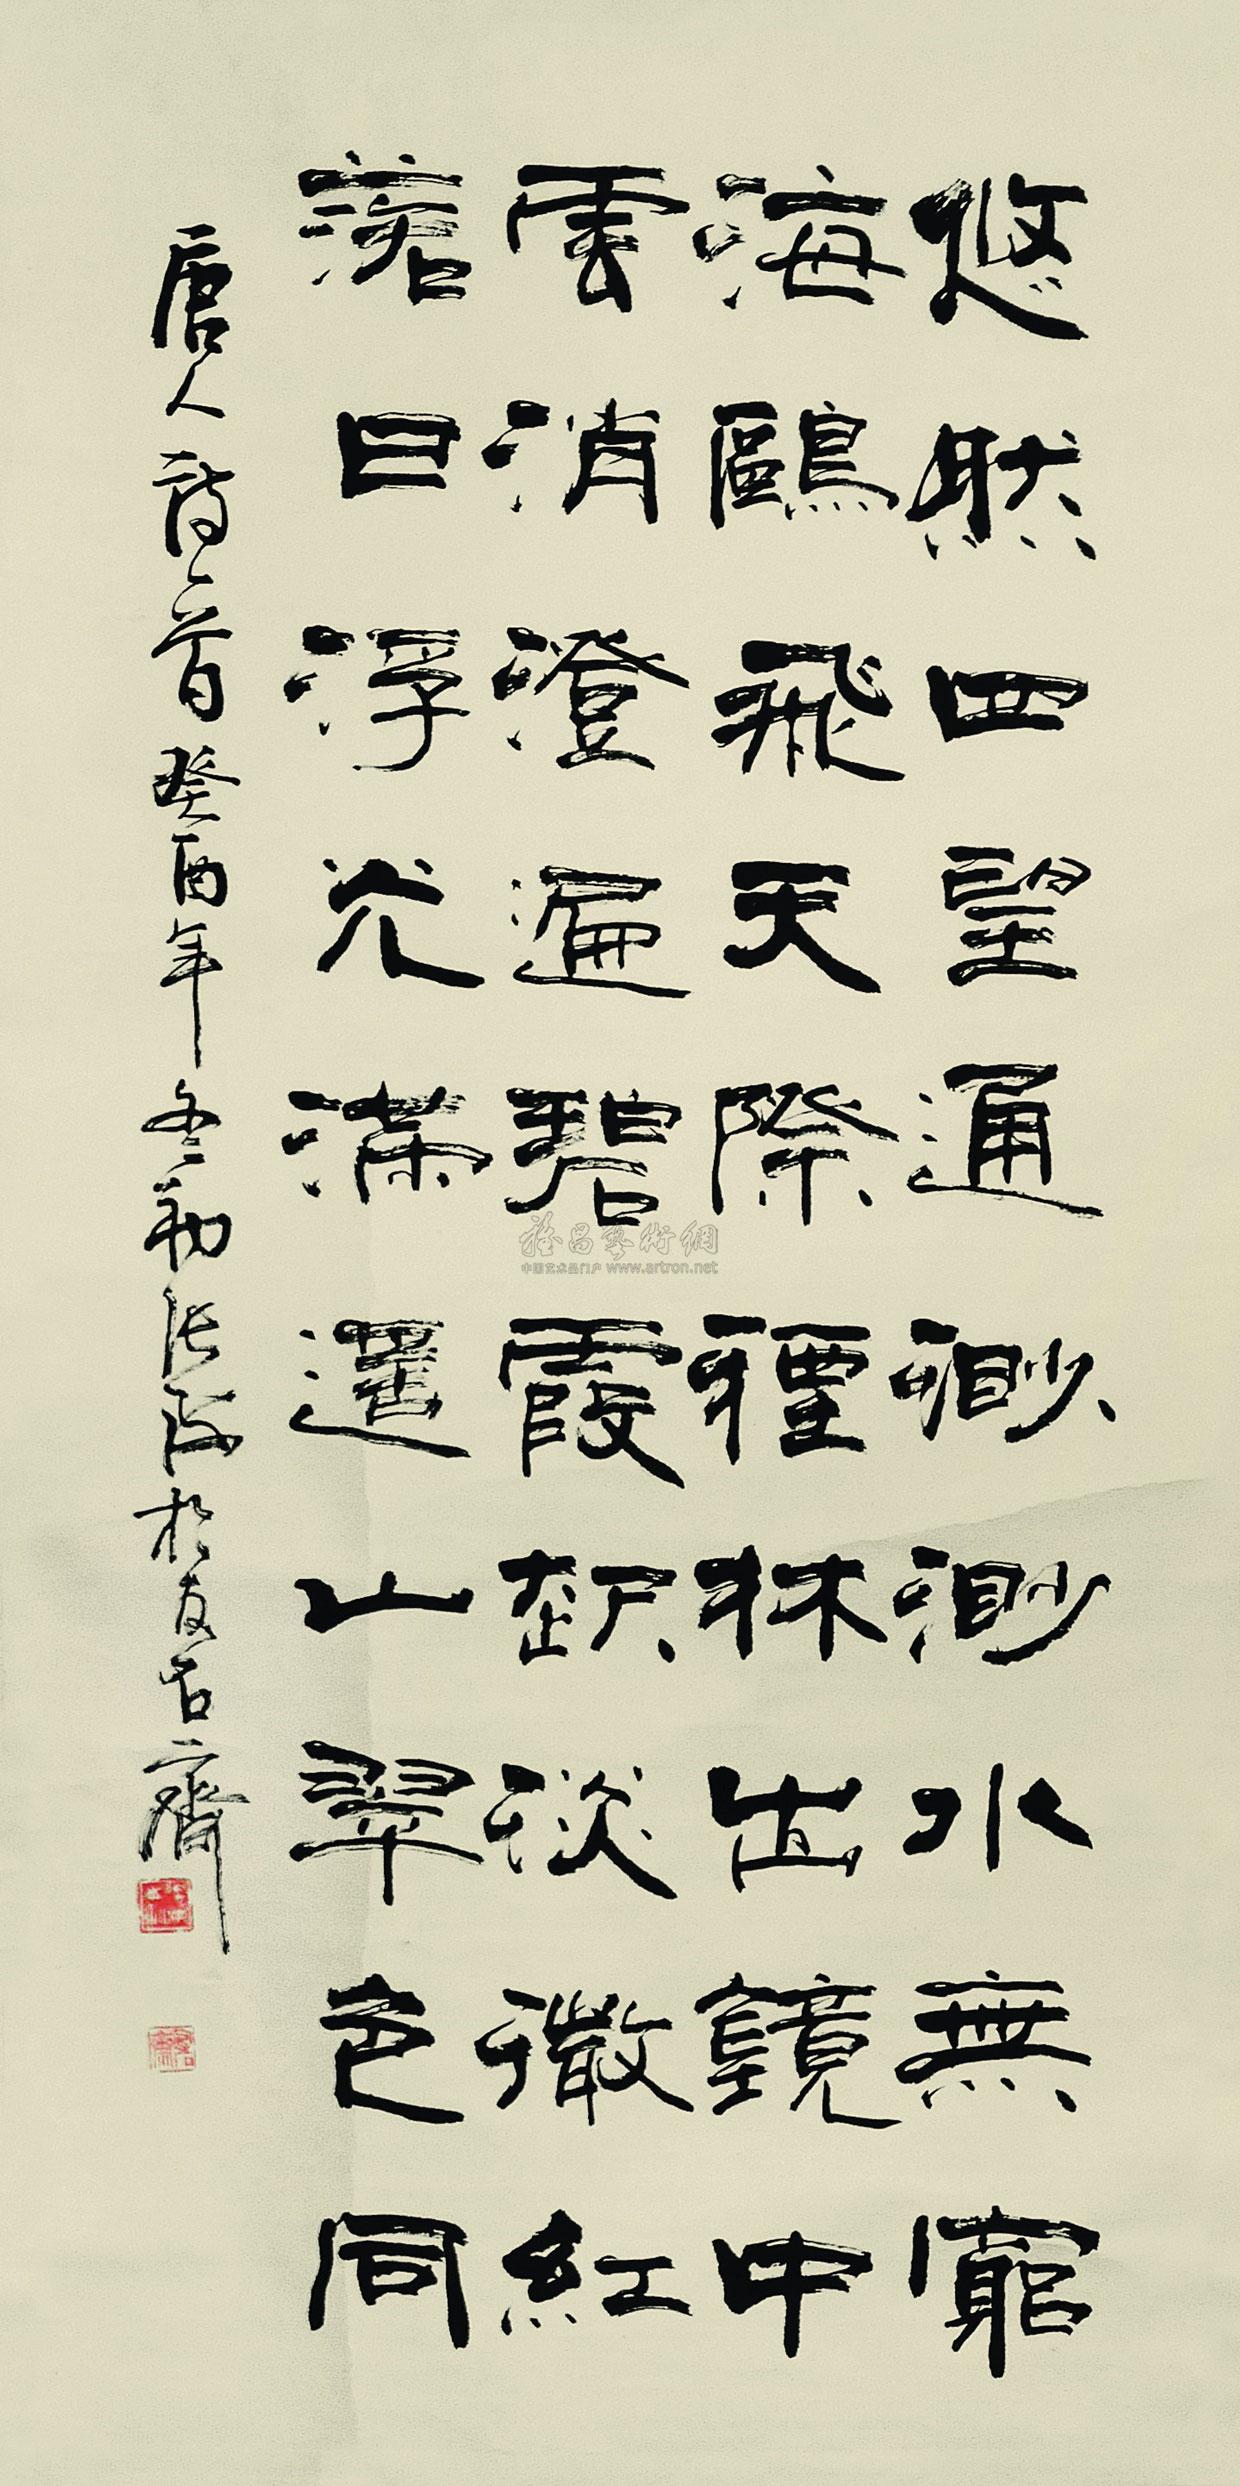 悠然四望通渺渺水無窮
海鷗飛天際煙林出鏡中
雲消澄遍碧霞起淡微紅
落日浮光滿遙山翠色同
唐人詩一首癸酉年冬張海於友古齋
雅昌藝術網
中国艺术品门户 www.artron.net